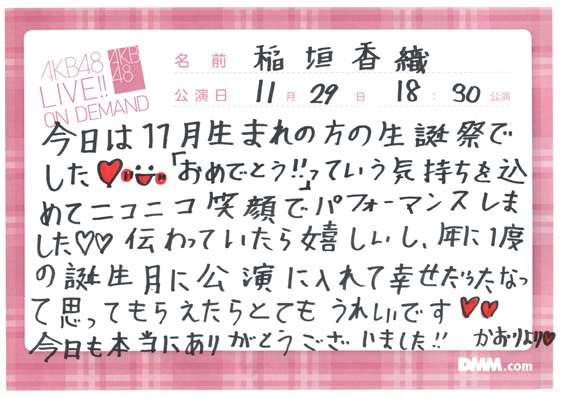 AKB48
LIVE!!
ON DEMAND
AKB
48
名前 稲垣香織
公演日 11月29日 18:30公演
今日は11月生まれの方の生誕祭で
した♥「おめでとう!!」っていう気持ちを込
めてニコニコ笑顔でパフォーマンスしま
した♡♡伝わっていたら嬉しいし、年に1度
の誕生月に公演に入れて幸せだったなっ
て思ってもらえたらとてもうれしいです♥♥
今日も本当にありがとうございました!! かおりより♥
DMM.com